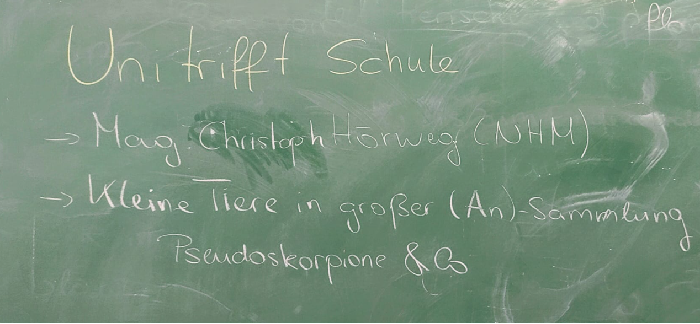 Uni trifft Schule
→ Mag. Christoph Hörweg (NHM)
→ Kleine Tiere in großer (An)-Sammlung
Pseudoskorpione & Co